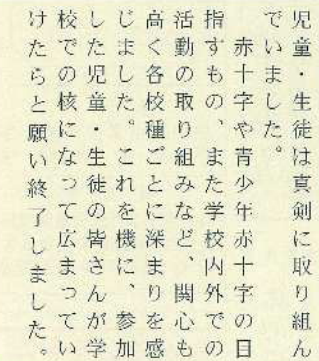 児童・生徒は真剣に取り組ん
でいました。
　赤十字や青少年赤十字の目
指すもの、また学校内外での
活動の取り組みなど、関心も
高く各校種ごとに深まりを感
じました。これを機に、参加
した児童・生徒の皆さんが学
校での核になって広まってい
けたらと願い終了しました。